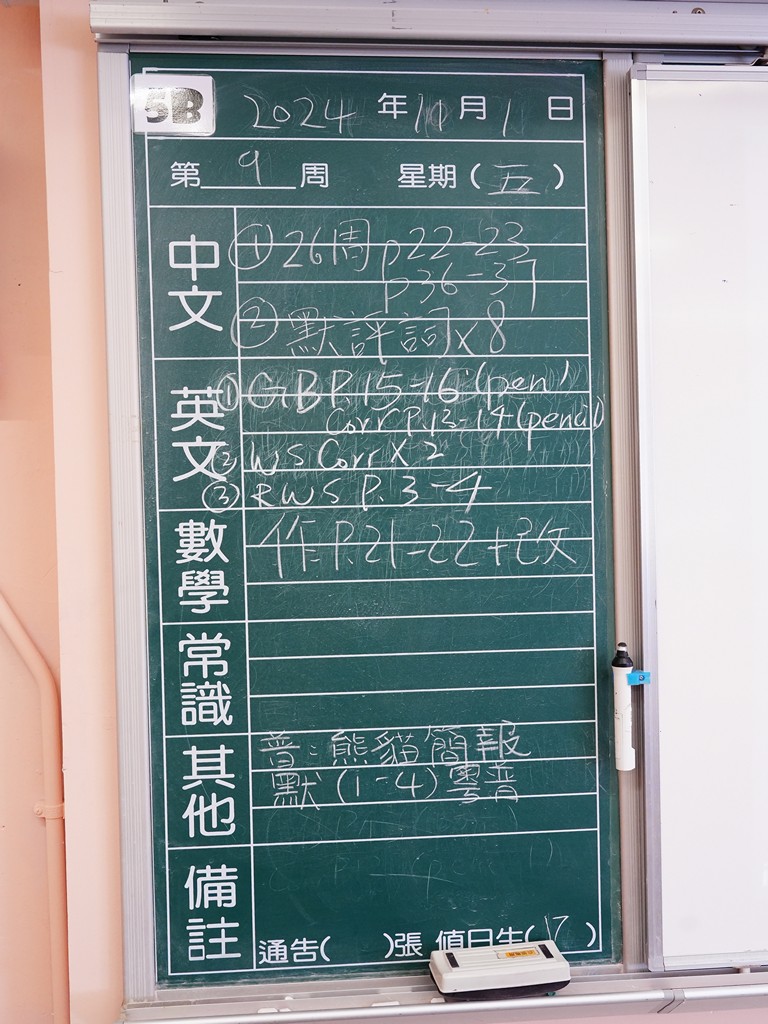 5B
2024 年 11 月 1 日
第 9 周 星期 ( 五 )
中文
① 26周 p22-23
p36-37
② 默評詞x8
英文
① GBP.15-16 (pen)
Corr P.13-14 (pencil)
② WS Corr X 2
③ RWS P.3-4
數學
作: P.21-22+改
常識
其他
普: 熊貓簡報
默 (1-4) 粵普
備註
通告( )張 值日生(17 )